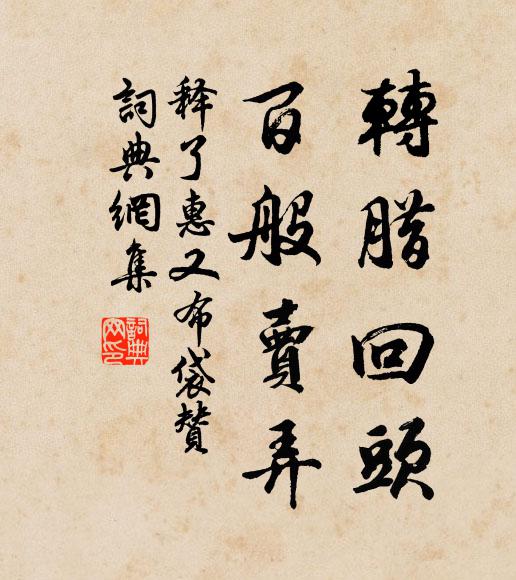 轉腊回頭
百般賣弄
释了惠又布袋賛
詞典網集
詞典網印